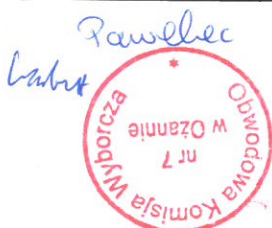 Pawelec
Obwodowa Komisja Wyborcza
nr 7
w Ożannie